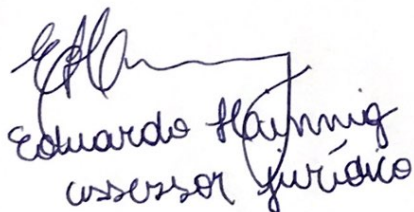 Eduardo Hainnig
assessor jurídico